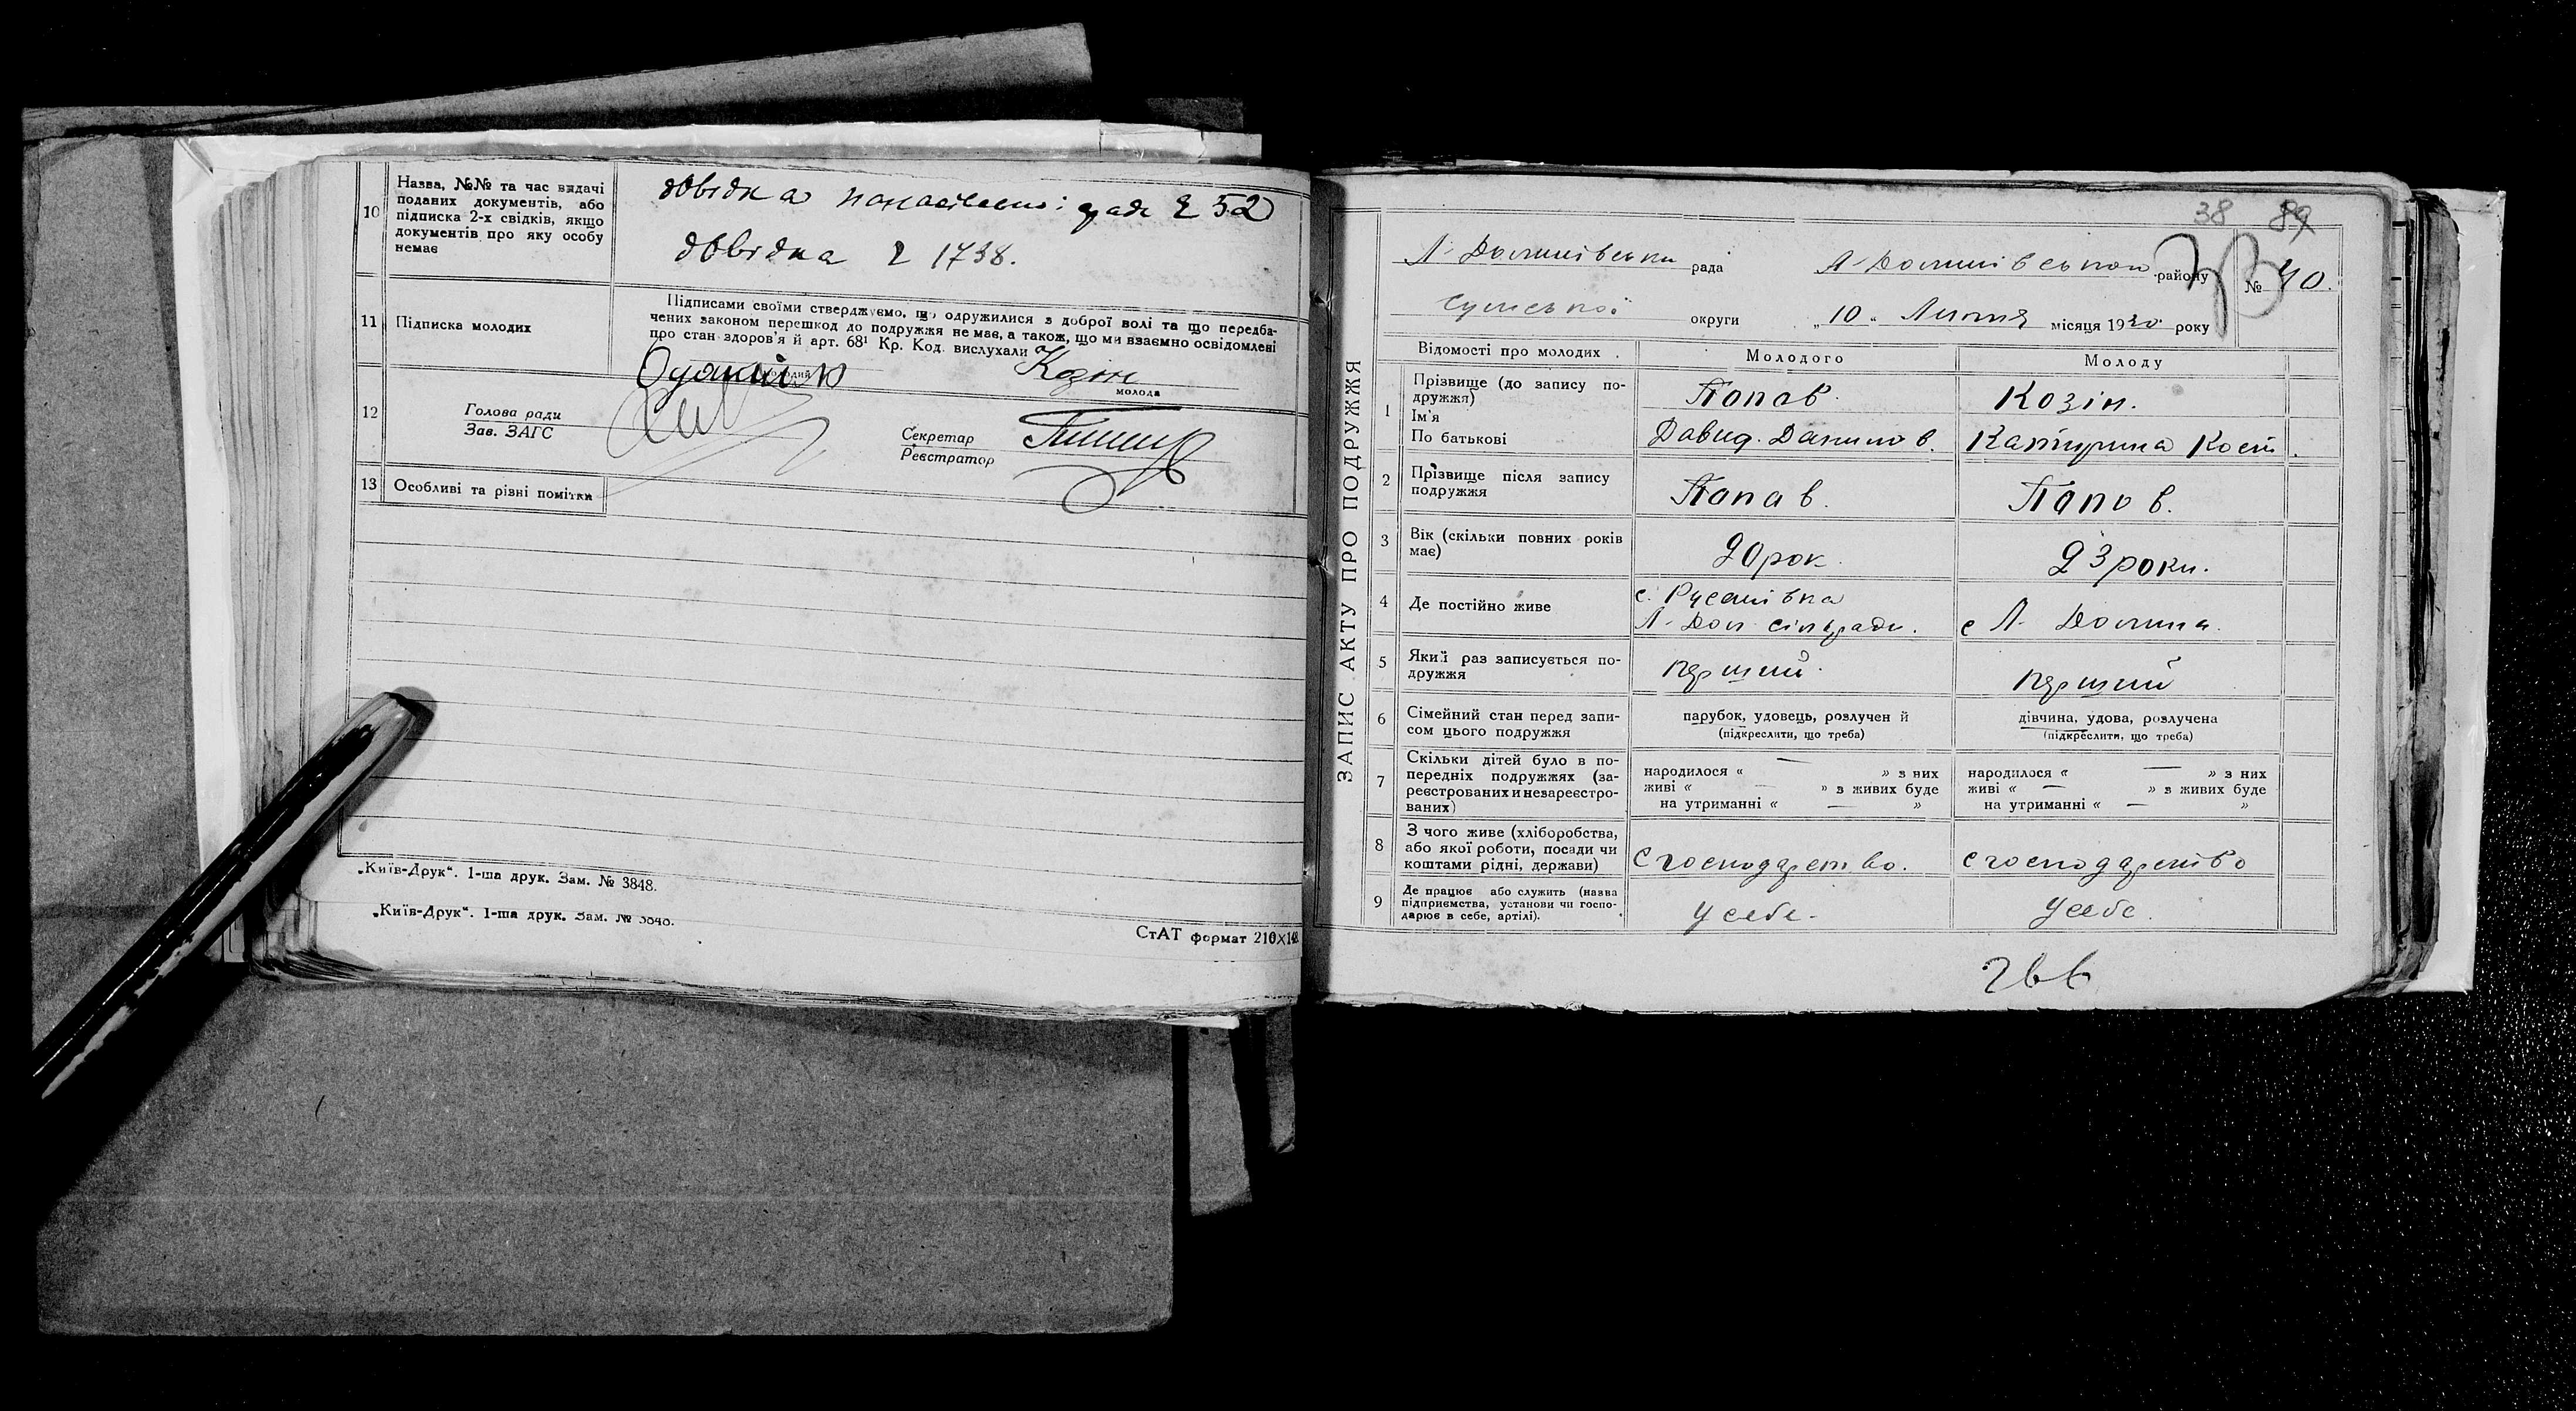 10 Назва, №№ та час видачі
поданих документів, або
підписка 2-х свідків, якщо
документів про яку особу
немає
довідка ради № 52
довідка № 1738.
11 Підписка молодих
Підписами своїми стверджуємо, що одружилися з доброї волі та що передба-
чених законом перешкод до подружжя немає, а також, що ми взаємно освідомлені
про стан здоров'я й арт. 68¹ Кр. Код. вислухали
молодий
Козін
молода
12 Голова ради
Зав. ЗАГС
Секретар
Реєстратор
13 Особливі та різні помітки
„Київ-Друк“. 1-ша друк. Зам. № 3848.
„Київ-Друк“. 1-ша друк. Зам. № 3848.
СтАТ формат 210×148
ЗАПИС АКТУ ПРО ПОДРУЖЖЯ
38 89
Л-Долинівська рада Л-Долинівського району № 40.
Сумської округи „10“ Липня місяця 1930 року
Відомості про молодих Молодого Молоду
1 Прізвище (до запису по-
дружжя) Попов. Козін.
Ім'я
По батькові Давид. Данилов. Катерина Кост.
2 Прізвище після запису
подружжя Попов. Попов.
3 Вік (скільки повних років
має) 20 рок. 23 роки.
4 Де постійно живе с. Русанівка
Л-Дол сільради. с Л-Долина.
5 Який раз записується по-
дружжя перший перший
6 Сімейний стан перед запи-
сом цього подружжя
парубок, удовець, розлучений
(підкреслити, що треба)
дівчина, удова, розлучена
(підкреслити, що треба)
7 Скільки дітей було в по-
передніх подружжях (за-
реєстрованих и незареєстро-
ваних)
народилося « — » з них
живі « — » з живих буде
на утриманні « — »
народилося « — » з них
живі « — » з живих буде
на утриманні « — »
8 З чого живе (хліборобства,
або якої роботи, посади чи
коштами рідні, держави) С господарство. С господарство
9 Де працює або служить (назва
підприємства, установи чи госпо-
дарює в себе, артілі). У себе. У себе.
266